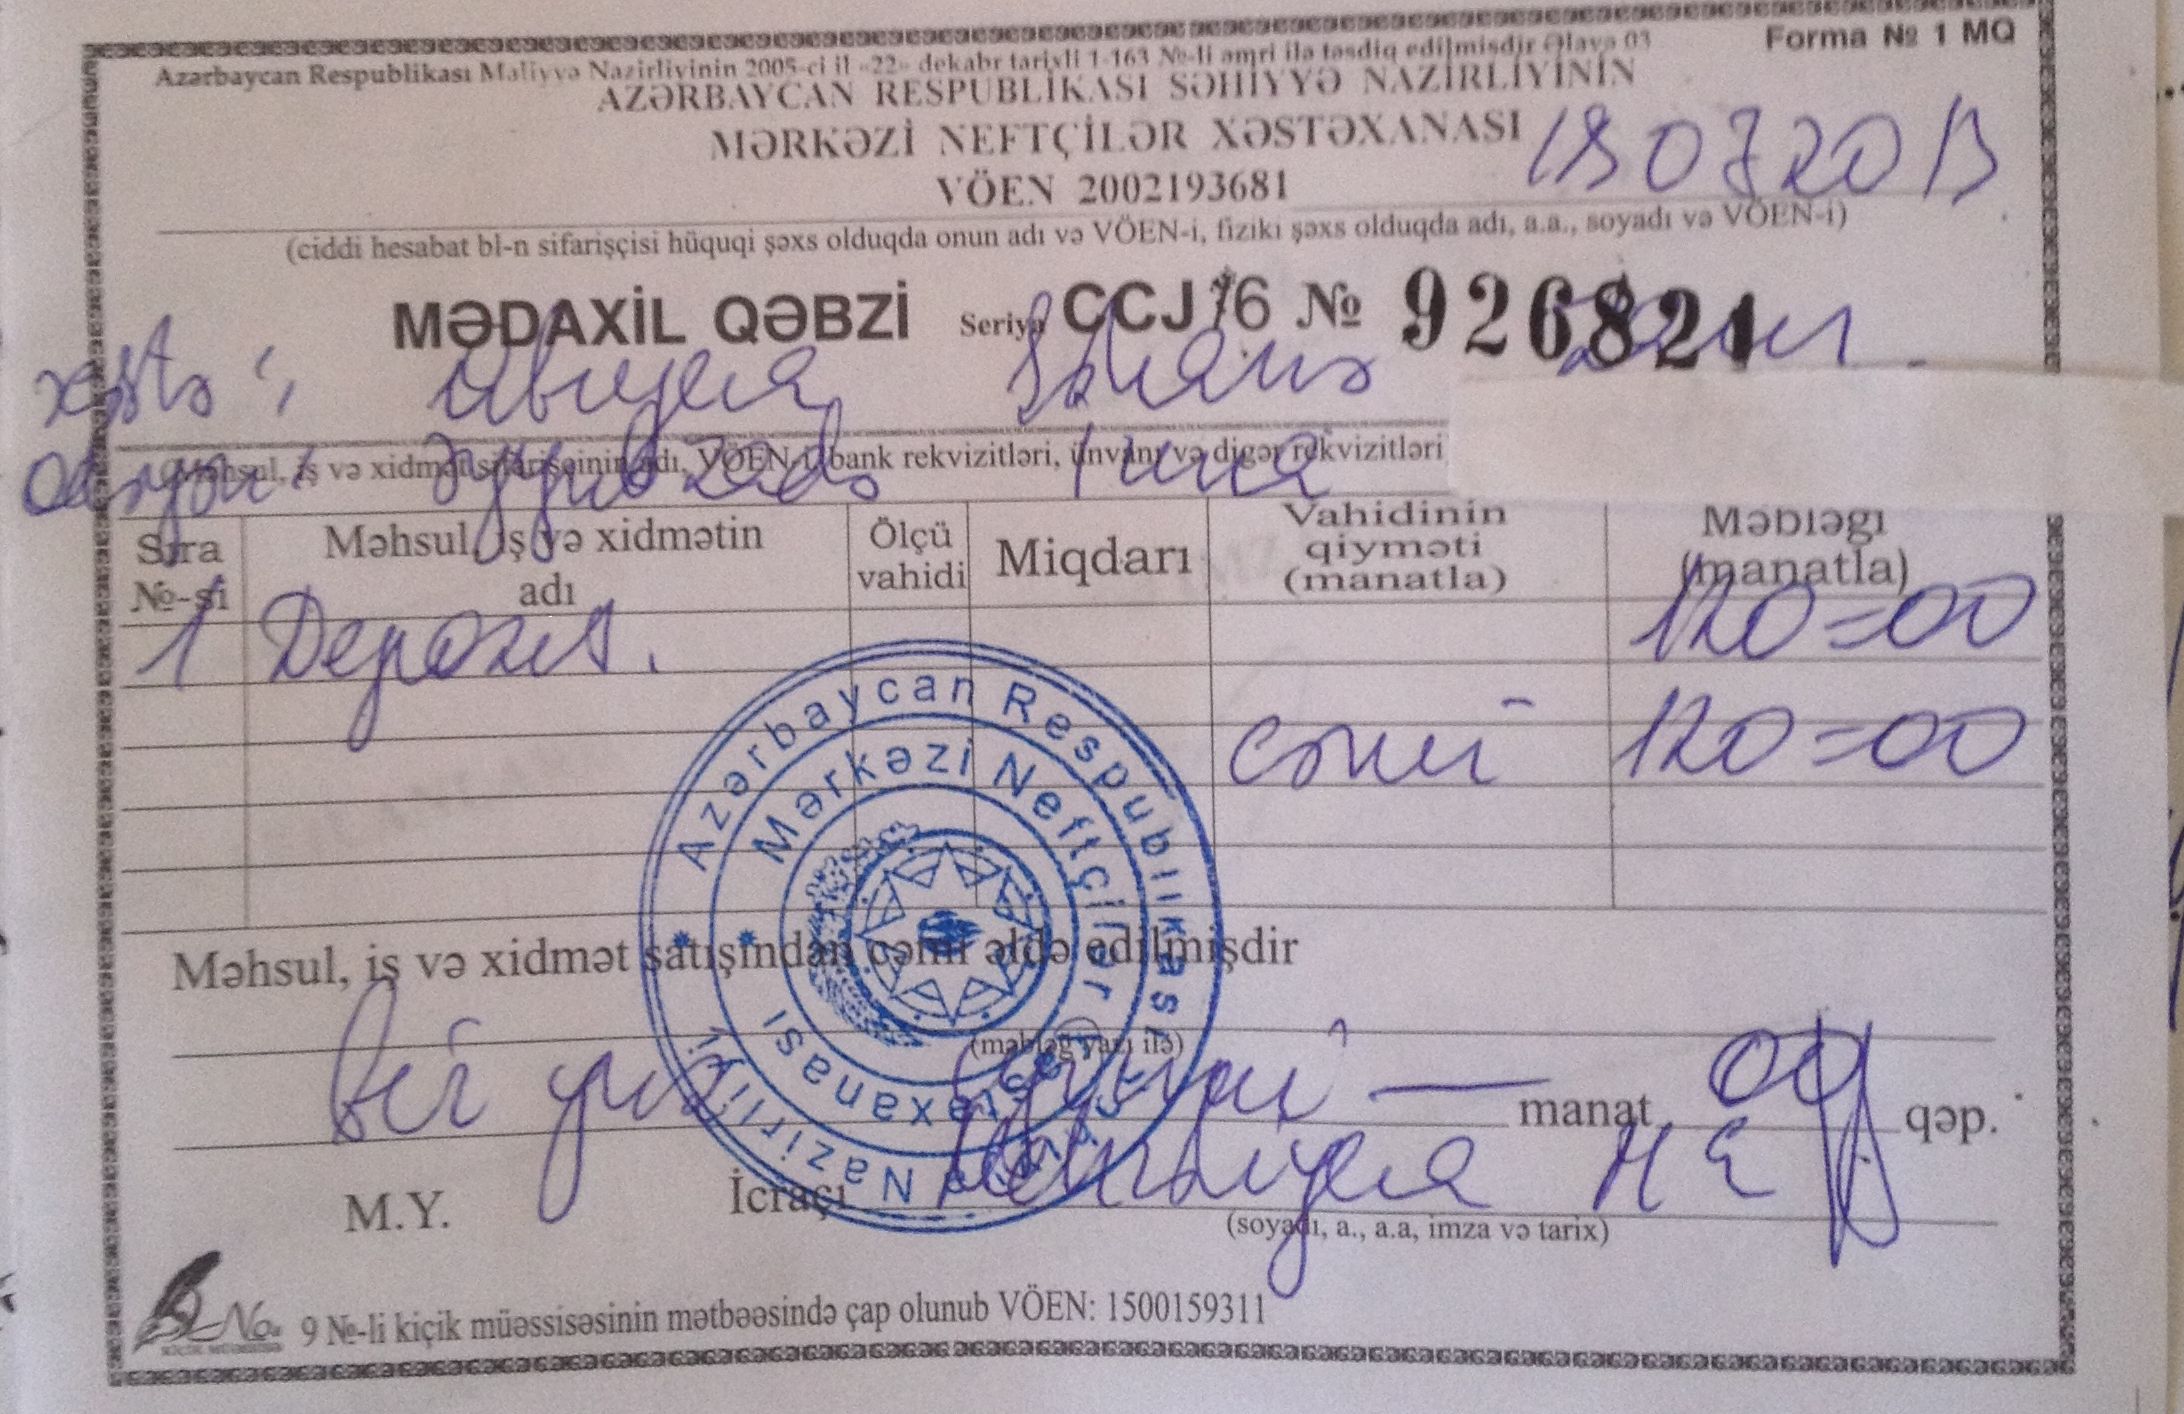 Forma № 1 MQ
Azərbaycan Respublikası Maliyyə Nazirliyinin 2005-ci il «22» dekabr tarixli 1-163 №-li əmri ilə təsdiq edilmişdir Əlavə 03
AZƏRBAYCAN RESPUBLİKASI SƏHİYYƏ NAZİRLİYİNİN
MƏRKƏZİ NEFTÇİLƏR XƏSTƏXANASI
VÖEN 2002193681
(ciddi hesabat bl-n sifarişçisi hüquqi şəxs olduqda onun adı və VÖEN-i, fiziki şəxs olduqda adı, a.a., soyadı və VÖEN-i)
MƏDAXİL QƏBZİ Seriya CCJ 16 № 926821
xəstə:
Məhsul, iş və xidmət sifarişçinin adı, VÖEN-i, bank rekvizitləri, ünvanı və digər rekvizitləri
Sıra №-si Məhsul, iş və xidmətin adı Ölçü vahidi Miqdarı Vahidinin qiyməti (manatla) Məbləği (manatla)
1 Depozit. 120=00
cəmi 120=00
Məhsul, iş və xidmət satışından cəmi əldə edilmişdir
(məbləğ yazı ilə)
bir yüz iyirmi — manat 00 qəp.
M.Y. İcraçı
(soyadı, a., a.a, imza və tarix)
Azərbaycan Respublikası Səhiyyə Nazirliyi
Mərkəzi Neftçilər Xəstəxanası
9 №-li kiçik müəssisəsinin mətbəəsində çap olunub VÖEN: 1500159311